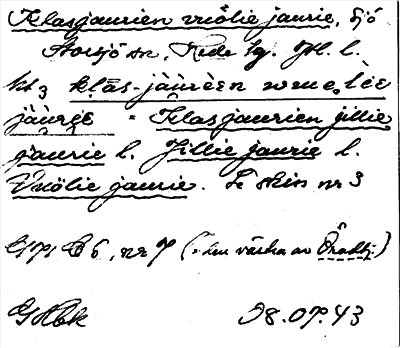 Klasjaurien vuölie jaurie, sjö
Storsjö sn, Rede lg. Jtl. l.
kl 3 klās-jàùrèen wuølèe
jàùrèe = Klasjaurien jillie
jaurie l. Jillie jaurie l.
Vuölie jaurie. Se skiss nr 3
G71 B 6, nr 7 (= den västra av Ånadtj.)
28.07.43